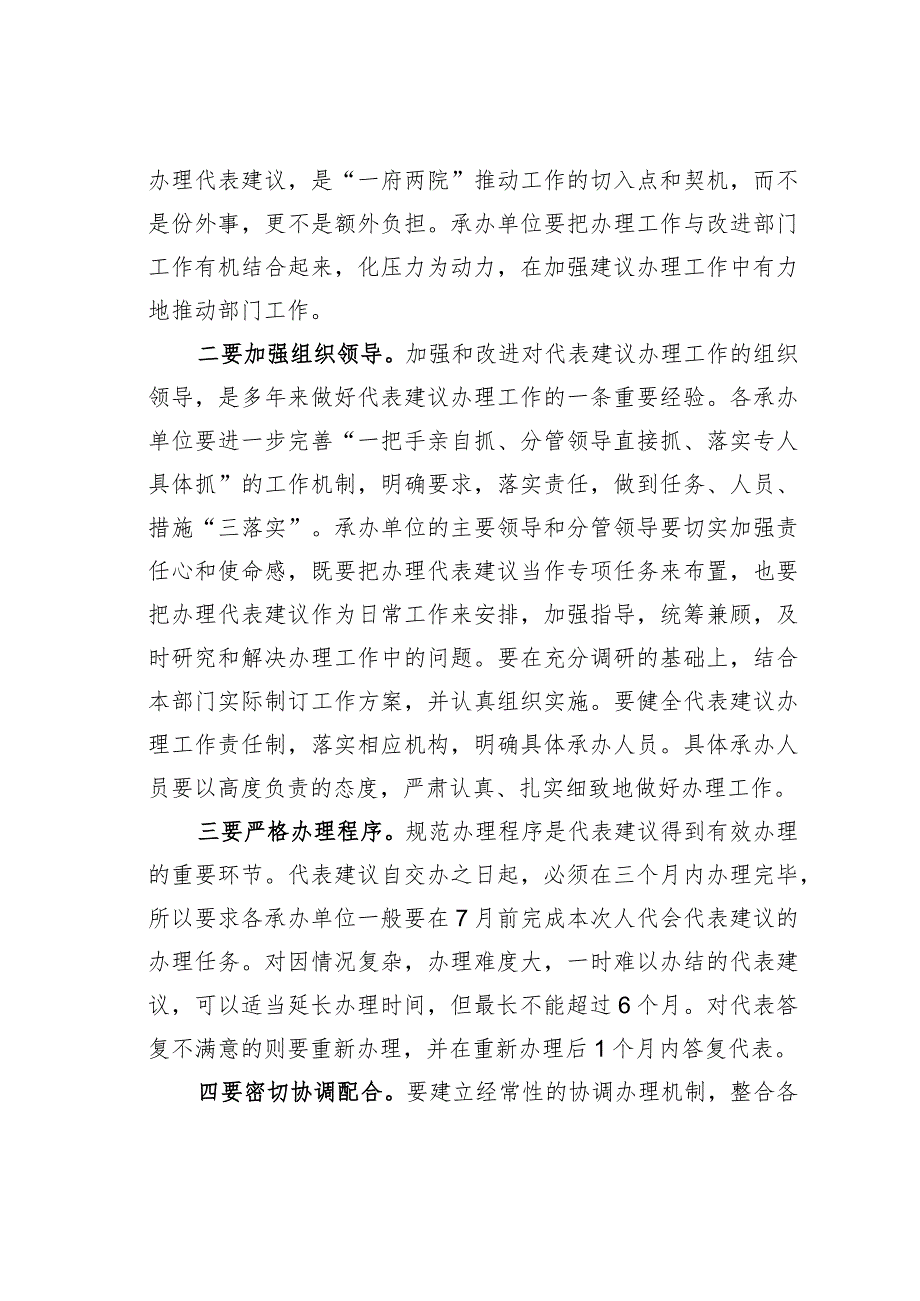 办理代表建议，是“一府两院”推动工作的切入点和契机，而不
是份外事，更不是额外负担。承办单位要把办理工作与改进部门
工作有机结合起来，化压力为动力，在加强建议办理工作中有力
地推动部门工作。
二要加强组织领导。加强和改进对代表建议办理工作的组织
领导，是多年来做好代表建议办理工作的一条重要经验。各承办
单位要进一步完善“一把手亲自抓、分管领导直接抓、落实专人
具体抓”的工作机制，明确要求，落实责任，做到任务、人员、
措施“三落实”。承办单位的主要领导和分管领导要切实加强责
任心和使命感，既要把办理代表建议当作专项任务来布置，也要
把办理代表建议作为日常工作来安排，加强指导，统筹兼顾，及
时研究和解决办理工作中的问题。要在充分调研的基础上，结合
本部门实际制订工作方案，并认真组织实施。要健全代表建议办
理工作责任制，落实相应机构，明确具体承办人员。具体承办人
员要以高度负责的态度，严肃认真、扎实细致地做好办理工作。
三要严格办理程序。规范办理程序是代表建议得到有效办理
的重要环节。代表建议自交办之日起，必须在三个月内办理完毕，
所以要求各承办单位一般要在7月前完成本次人代会代表建议的
办理任务。对因情况复杂，办理难度大，一时难以办结的代表建
议，可以适当延长办理时间，但最长不能超过6个月。对代表答
复不满意的则要重新办理，并在重新办理后1个月内答复代表。
四要密切协调配合。要建立经常性的协调办理机制，整合各